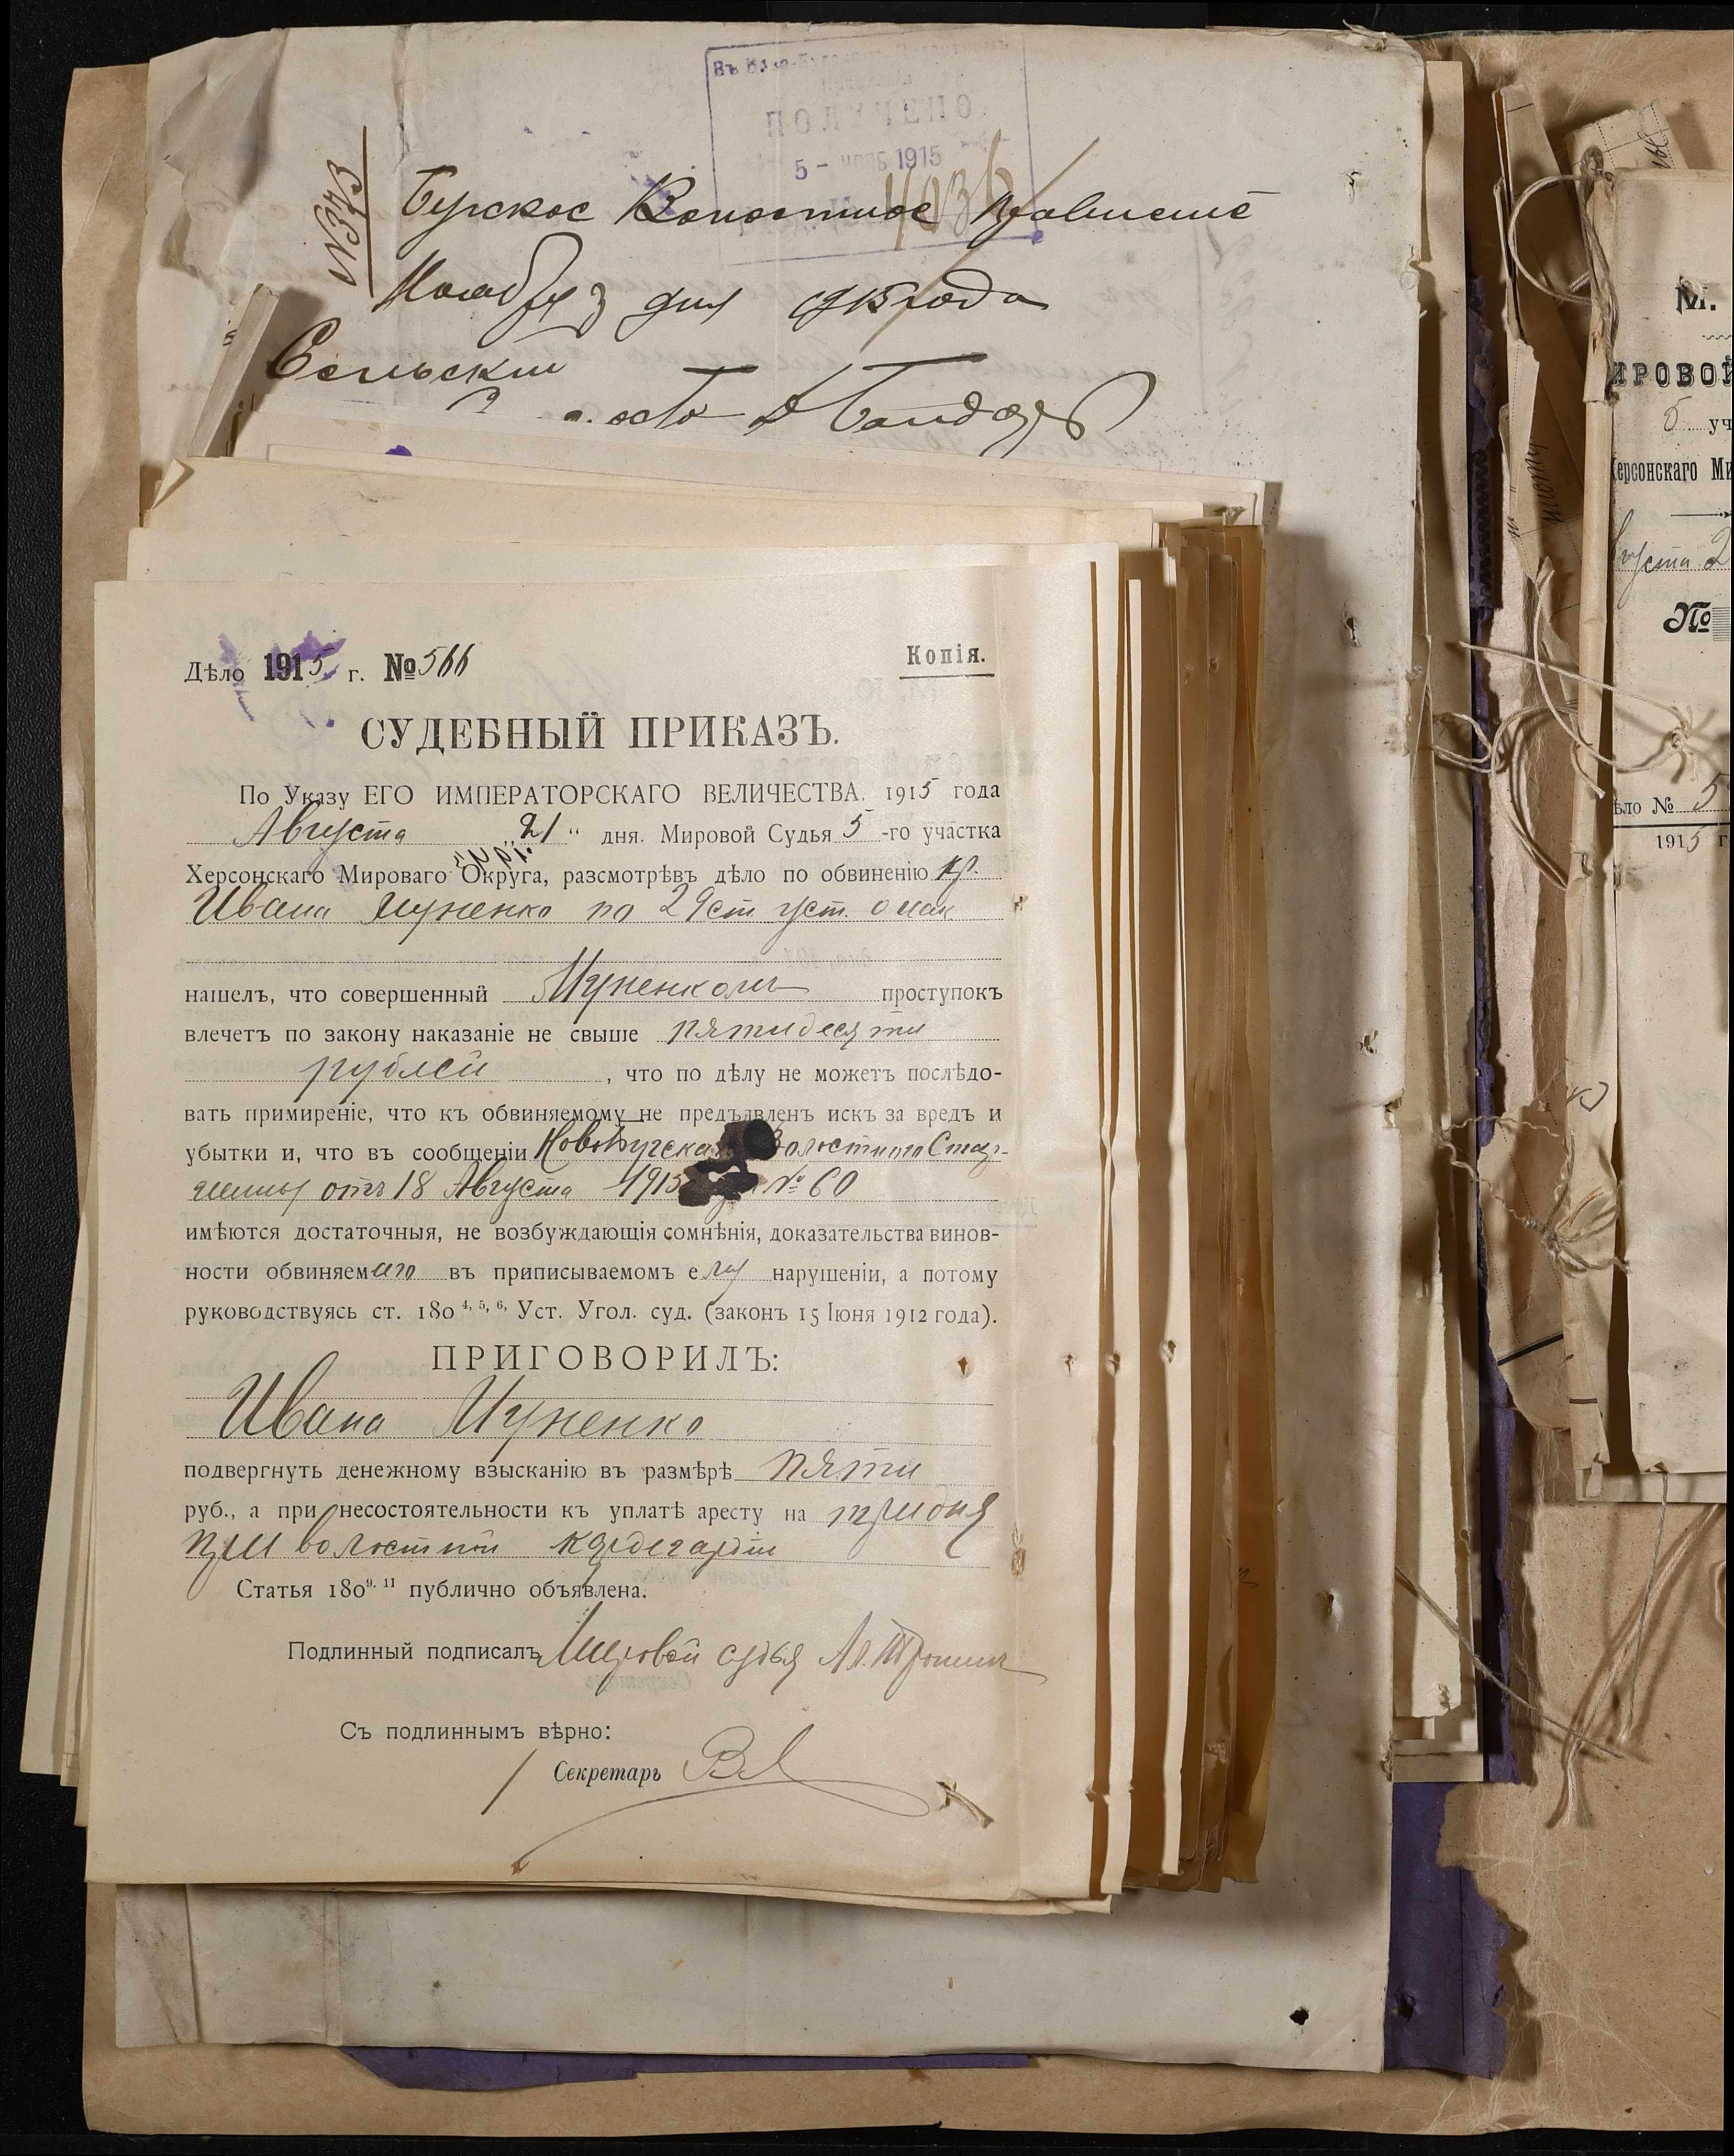 ПОЛУЧЕНО
5 - нояб 1915
№373
Бугское Волостное Правление
Ноября 3 дня 1915 года
Сельский
Дѣло 1915 г. № 566
Копія.
СУДЕБНЫЙ ПРИКАЗЪ.
По Указу ЕГО ИМПЕРАТОРСКАГО ВЕЛИЧЕСТВА. 1915 года
Августа „21“ дня. Мировой Судья 5-го участка
Херсонскаго Мироваго Округа, разсмотрѣвъ дѣло по обвиненію кр.
Ивана Муненко по 29 ст. уст. о нак
нашелъ, что совершенный Муненкомъ проступокъ
влечетъ по закону наказаніе не свыше пятидесяти
рублей, что по дѣлу не можетъ послѣдо-
вать примиреніе, что къ обвиняемому не предъявленъ искъ за вредъ и
убытки и, что въ сообщеніи Волостного Стар-
шины отъ 18 Августа 1915 № 60
имѣются достаточныя, не возбуждающія сомнѣнія, доказательства винов-
ности обвиняемаго въ приписываемомъ ему нарушеніи, а потому
руководствуясь ст. 180 4, 5, 6, Уст. Угол. суд. (законъ 15 Іюня 1912 года).
ПРИГОВОРИЛЪ:
Ивана Муненко
подвергнуть денежному взысканію въ размѣрѣ пяти
руб., а при несостоятельности къ уплатѣ аресту на три дня
при волостной кордегардіи
Статья 180 9. 11 публично объявлена.
Подлинный подписалъ Мировой судья Ал.
Съ подлиннымъ вѣрно:
Секретарь
М.
ИРОВОЙ
5 уч
Херсонскаго Ми
вгуста 2
№
ѣло № 5
1915 г